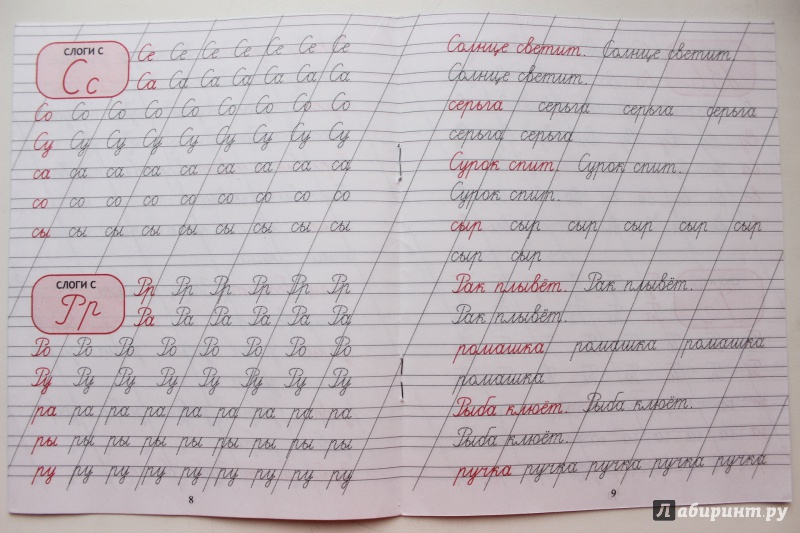 СЛОГИ С
Сс
Се Се Се Се Се Се Се
Са Са Са Са Са Са Са
Со Со Со Со Со Со Со Со Со
Су Су Су Су Су Су Су Су Су
са са са са са са са са са
со со со со со со со со со
сы сы сы сы сы сы сы сы сы
СЛОГИ С
Рр
Рр Рр Рр Рр Рр Рр
Ра Ра Ра Ра Ра Ра
Ро Ро Ро Ро Ро Ро Ро Ро
Ру Ру Ру Ру Ру Ру Ру Ру
ра ра ра ра ра ра ра ра ра
ры ры ры ры ры ры ры ры ры
ру ру ру ру ру ру ру ру ру
8
Солнце светит. Солнце светит.
Солнце светит.
серьга серьга серьга серьга
серьга серьга
Сурок спит. Сурок спит.
Сурок спит.
сыр сыр сыр сыр сыр сыр
сыр сыр
Рак плывёт. Рак плывёт.
Рак плывёт.
ромашка ромашка ромашка
ромашка
Рыба клюёт. Рыба клюёт.
Рыба клюёт.
ручка ручка ручка ручка ручка
9
Лабиринт.ру